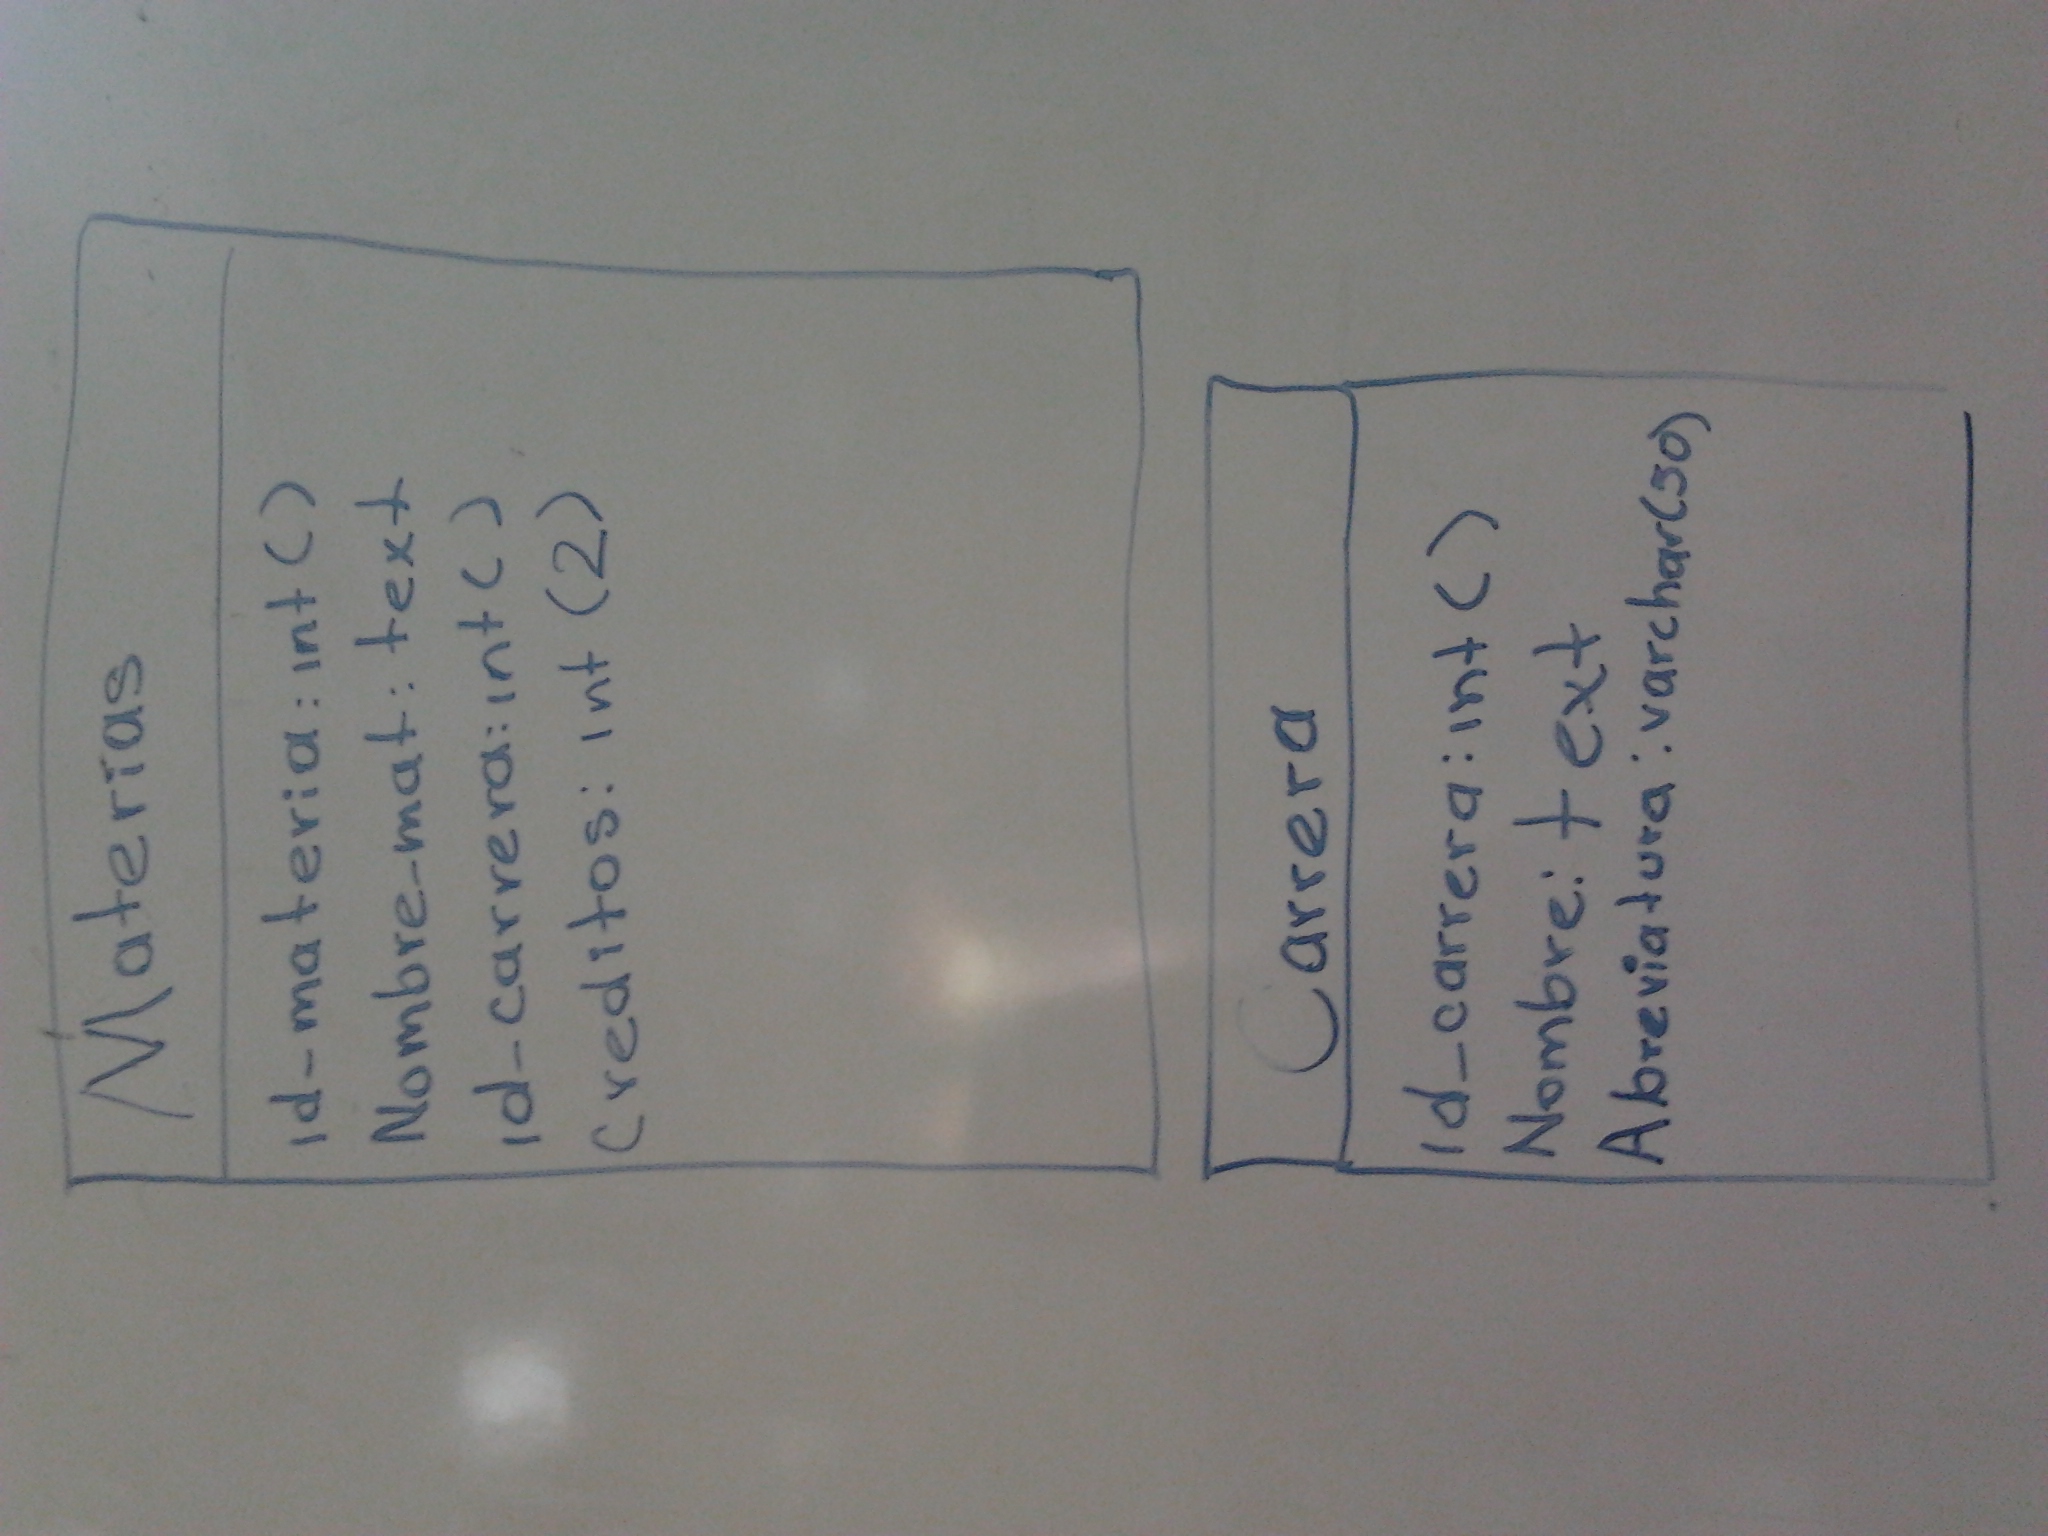 Materias
id-materia: int ( )
Nombre-mat: text
id-carrera: int ( )
Creditos: int (2)
Carrera
id_carrera: int ( )
Nombre: text
Abreviatura: varchar(50)